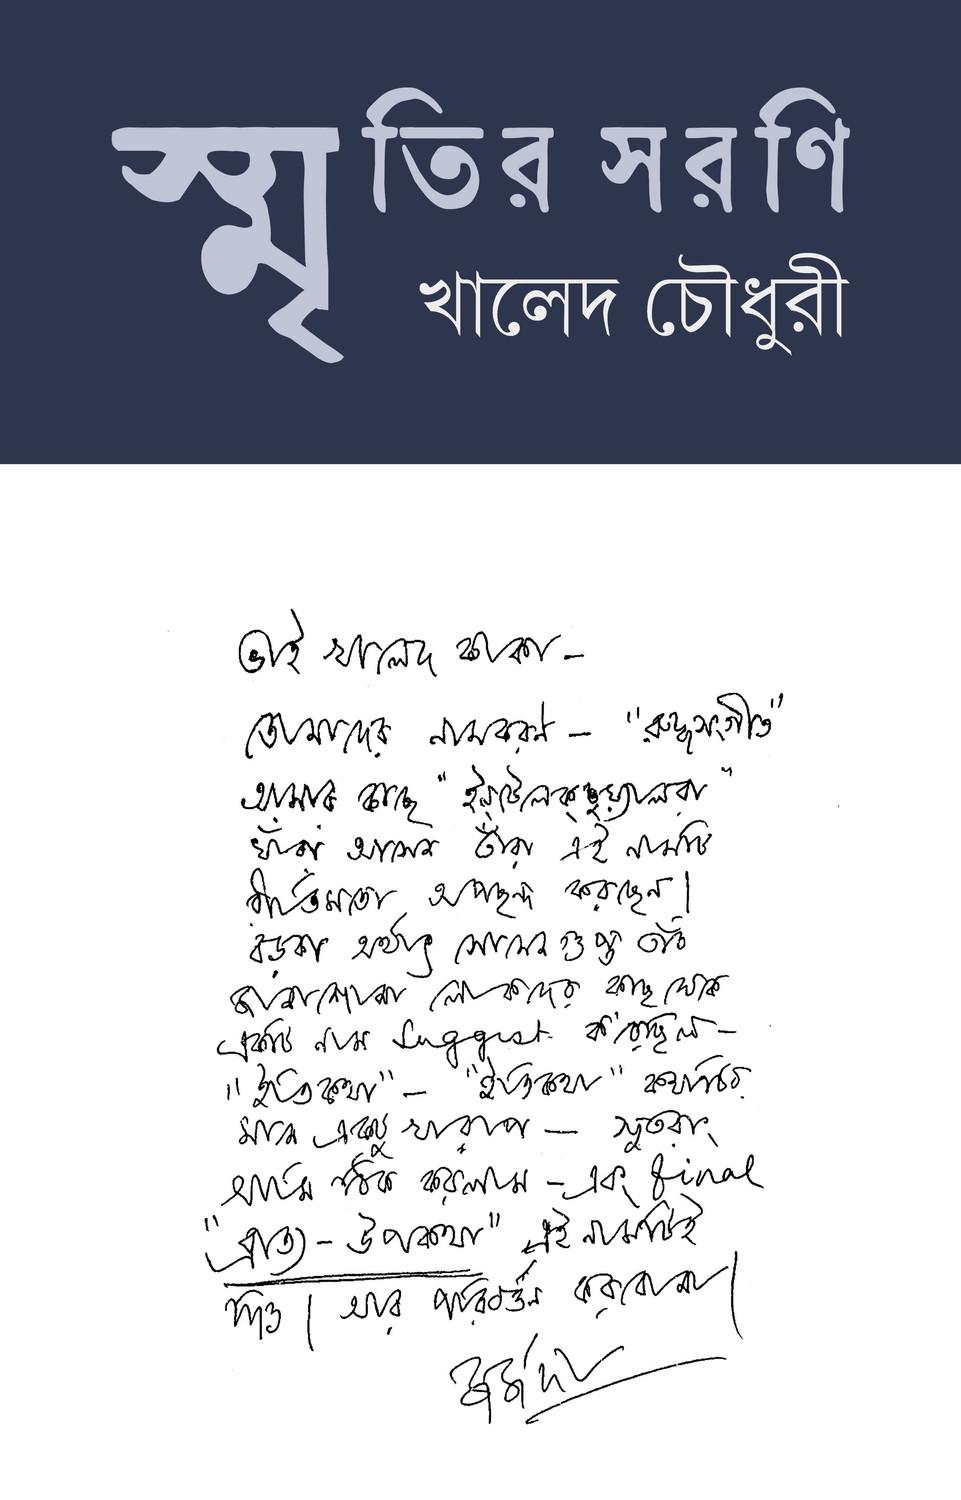 স্মৃতির সরণি
খালেদ চৌধুরী
ভাই খালেদ কাকা —
তোমাদের নামকরণ — "রুদ্ধসংগীত"
আমার কাছে "ইন্টেলেক্‌চুয়্যালরা"
যাঁরা আসেন তাঁরা এই নামটি
রীতিমতো অপছন্দ করছেন।
বড়কা অর্থাৎ গুপ্ত তাঁর
জানাশোনা লোকদের কাছ থেকে
একটি নাম Suggest করেছিল —
"ইতিকথা" — "ইতিকথা" কথাটির
মানে একটু খারাপ — সুতরাং
আমি ঠিক করলাম — এবং final
"ব্রাত্য - উপকথা" এই নামটিই
দিও। আর পরিবর্ত্তন করবোনা।
জর্জদা